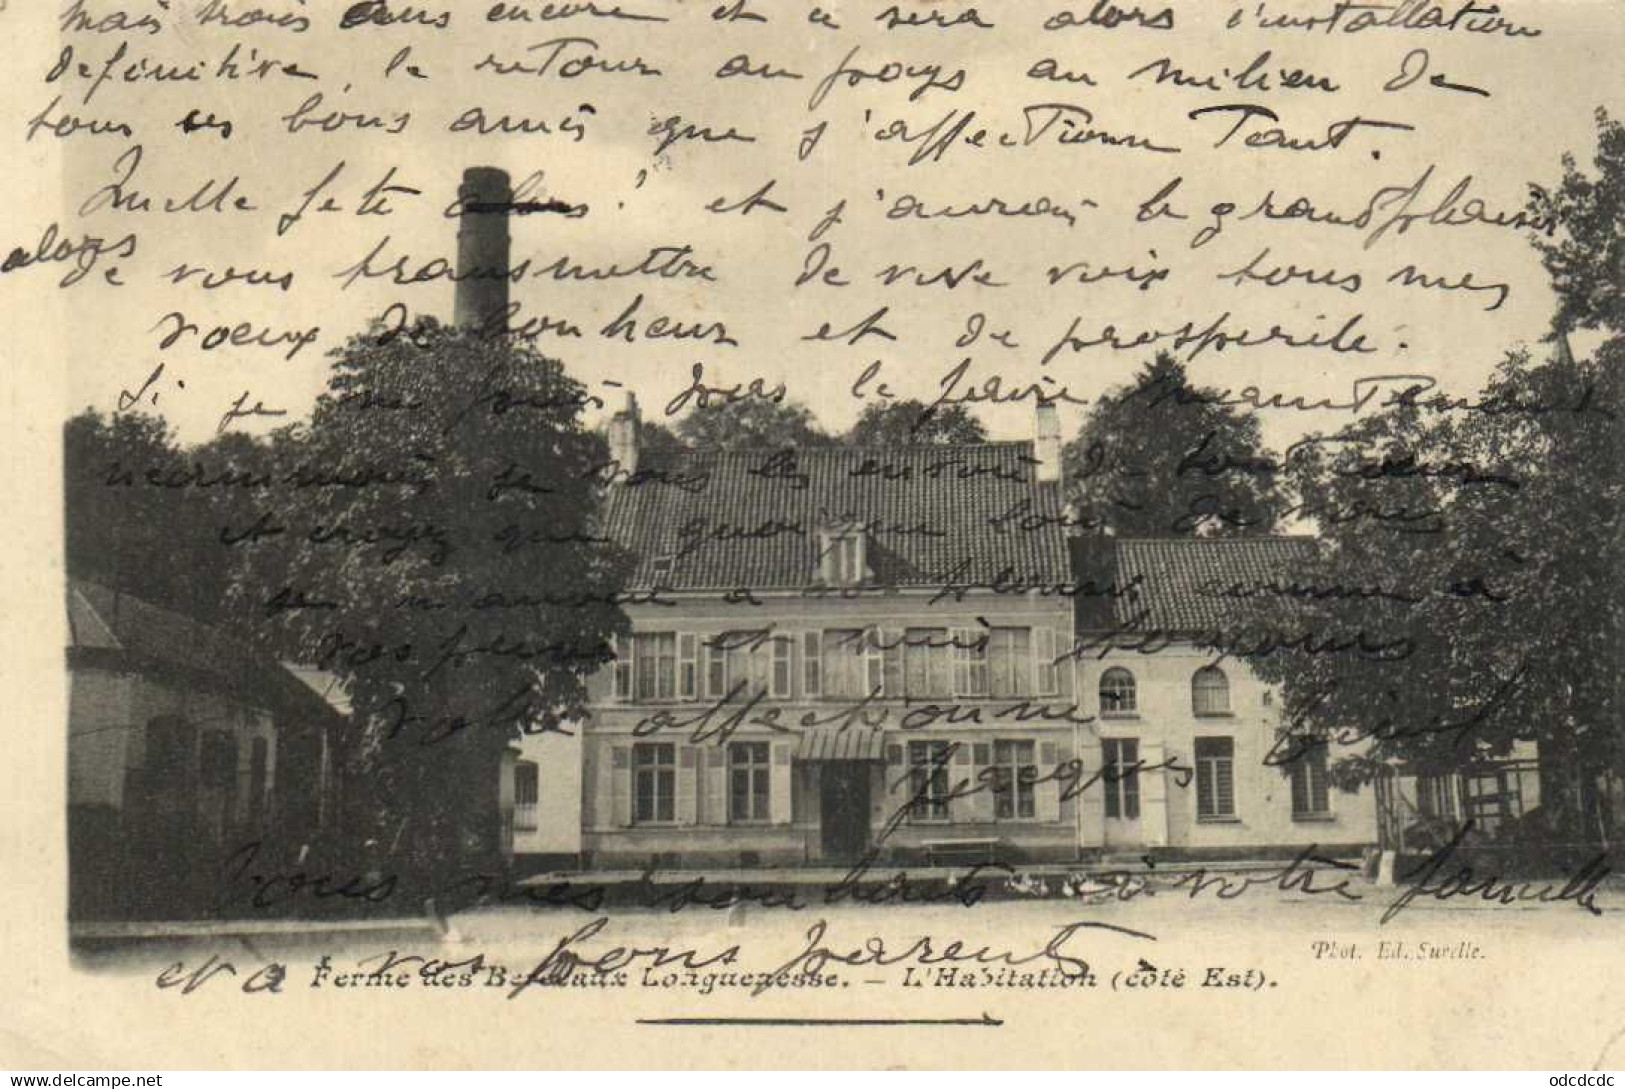 mais trois ans encore et ce sera alors l'installation
définitive, le retour au pays au milieu de
tous ces bons amis que j'affectionne tant.
Quelle fête alors ! et j'aurais le grand plaisir
alors
de vous transmettre de vive voix tous mes
voeux de bonheur et de prosperité.
Si je ne puis pas le faire maintenant
neanmoins je vous les envoie de tout coeur
et croyez que quoique loin de vous
je m'associe a vos plaisirs comme à
vos peines et suis toujours
votre affectionné
Jacques
Tous mes souhaits à votre famille
et à vos bons parents
Phot. Ed. Surelle.
Ferme des Berceaux Longuenesse. — L'Habitation (côté Est).
odcdcdc